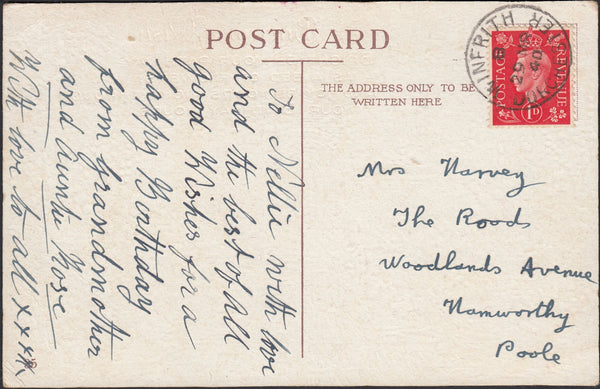 POST CARD
THE ADDRESS ONLY TO BE
WRITTEN HERE
To Nellie with love
and the best of all
good Wishes for a
happy Birthday
from grandmother
and Auntie Rose
With love to all xxxx
WINFRITH
29
40
POSTAGE
REVENUE
1D
Mrs Harvey
The Roods
Woodlands Avenue
Hamworthy
Poole